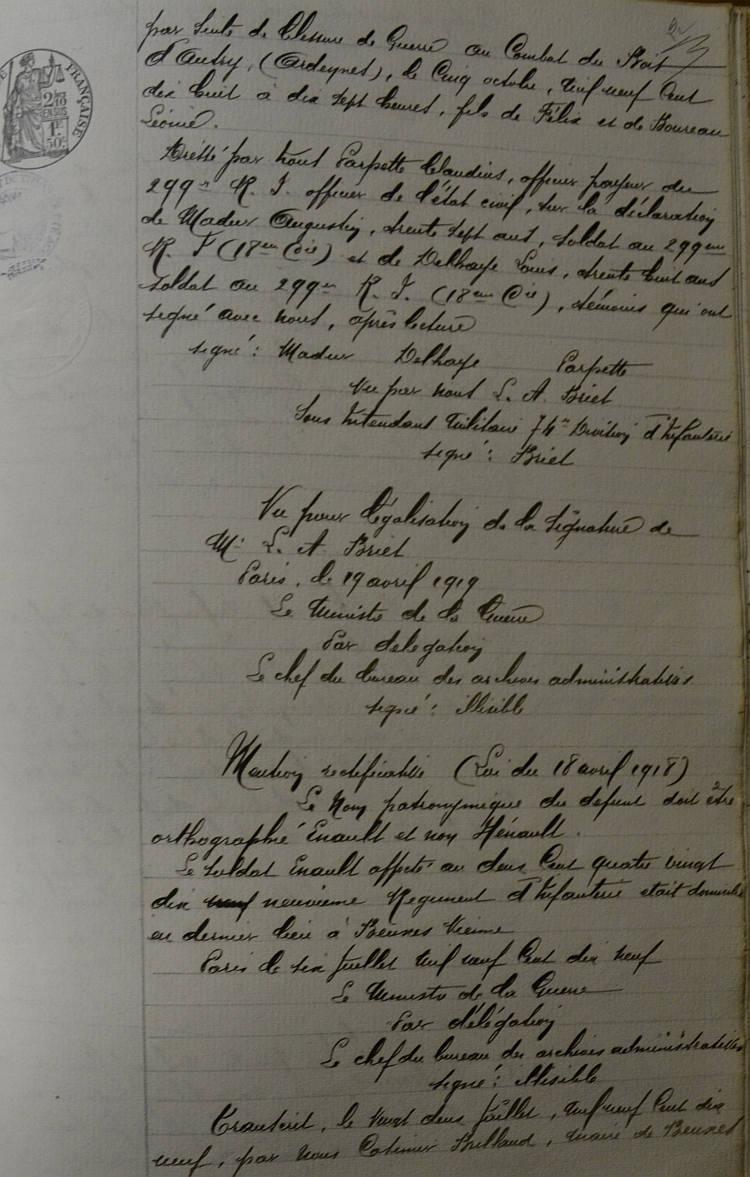 par suite de blessure de Guerre au Combat du Bois
d'Autry, (Ardennes), le Cinq octobre, mil neuf Cent
dix huit à dix sept heures, fils de Félix et de Boureau
Léonie.
Dressé par nous Parpette Claudius, officier payeur du
299e R. I. officier de l'état civil, sur la déclaration
de Madur Augustin, trente sept ans, soldat au 299eme
R. I (18eme Cie) et de Delhaye Louis, trente huit ans
soldat au 299em R. I. (18eme Cie), témoins qui ont
signé avec nous, après lecture
signé: Madur Delhaye Parpette
Vu par nous L. A. Briet
Sous Intendant Militaire 74e Division d'Infanterie
signé: Briet
Vu pour légalisation de la signature de
Mr L. A Briet
Paris, le 19 avril 1919
Le Ministre de la Guerre
Par délégation
Le chef du bureau des archives administratives
signé: illisible
Mention rectificative (Loi du 18 avril 1918)
Le Nom patronymique du défunt doit être
orthographié Enault et non Hénault.
Le soldat Enault affecté au deux Cent quatre vingt
dix neuf neuvième Régiment d'Infanterie était domicilié
en dernier lieu à Beuxes Vienne
Paris le six Juillet mil neuf Cent dix neuf
Le Ministre de la Guerre
Par délégation
Le chef du bureau des archives administratives
signé: illisible
Transcrit, le vingt deux Juillet, mil neuf Cent dix
neuf, par nous Casimir Brillaud, maire de Beuxes
FRANÇAISE
2/10
EN SUS
1F
50c